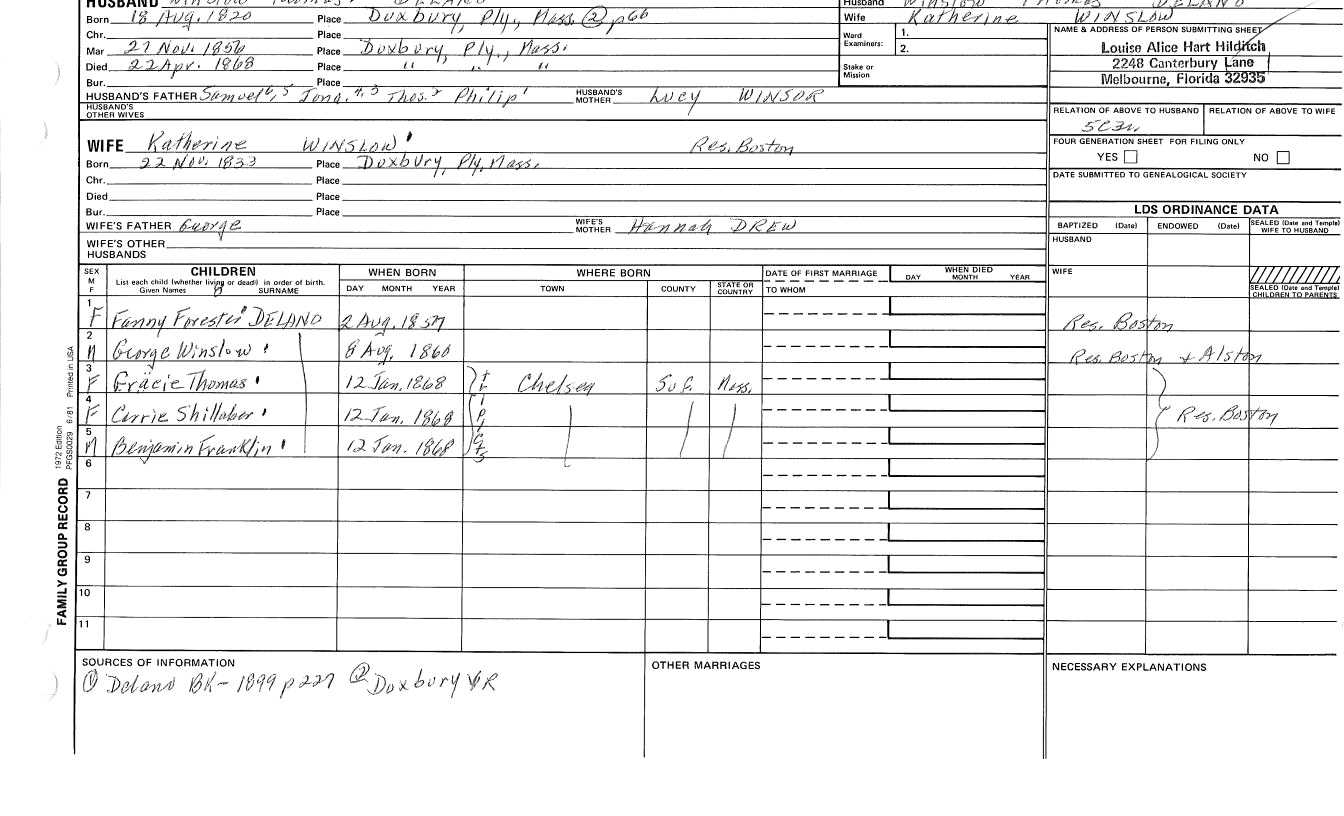 HUSBAND Winslow Thomas DELANO
Born 18 Aug, 1820 Place Duxbury, Ply., Mass. ② p66
Chr. Place
Mar 27 Nov. 1856 Place Duxbury, Ply., Mass.
Died 22 Apr. 1868 Place " " "
Bur. Place
HUSBAND'S FATHER Samuel 6, 5 Jona. 4, 3 Thos. 2 Philip 1 HUSBAND'S MOTHER Lucy WINSOR
HUSBAND'S OTHER WIVES
Husband Winslow Thomas DELANO
Wife Katherine WINSLOW
Ward Examiners: 1.
2.
Stake or Mission
NAME & ADDRESS OF PERSON SUBMITTING SHEET
Louise Alice Hart Hilditch
2248 Canterbury Lane
Melbourne, Florida 32935
RELATION OF ABOVE TO HUSBAND RELATION OF ABOVE TO WIFE
5C3R
FOUR GENERATION SHEET FOR FILING ONLY
YES NO
DATE SUBMITTED TO GENEALOGICAL SOCIETY
WIFE Katherine WINSLOW ' Res. Boston
Born 22 Nov. 1833 Place Duxbury, Ply, Mass.
Chr. Place
Died Place
Bur. Place
WIFE'S FATHER George WIFE'S MOTHER Hannah DREW
WIFE'S OTHER HUSBANDS
LDS ORDINANCE DATA
BAPTIZED (Date) ENDOWED (Date) SEALED (Date and Temple) WIFE TO HUSBAND
HUSBAND
WIFE
SEALED (Date and Temple) CHILDREN TO PARENTS
SEX M F CHILDREN WHEN BORN WHERE BORN DATE OF FIRST MARRIAGE WHEN DIED
List each child (whether living or dead) in order of birth.
Given Names SURNAME DAY MONTH YEAR TOWN COUNTY STATE OR COUNTRY TO WHOM DAY MONTH YEAR
1 F Fanny Forester DELANO 2 Aug. 1857 Res. Boston
2 M George Winslow ' 8 Aug, 1860 Res. Boston & Alston
3 F Gracie Thomas ' 12 Jan. 1868 Chelsea Suf. Mass.
4 F Carrie Shillaber ' 12 Jan. 1868 Res. Boston
5 M Benjamin Franklin ' 12 Jan. 1868
Triplets
6
7
8
9
10
11
SOURCES OF INFORMATION
① Delano BK - 1899 p 227 ② Duxbury VR
OTHER MARRIAGES
NECESSARY EXPLANATIONS
FAMILY GROUP RECORD
1972 Edition
PFGS0029 6/81 Printed in USA